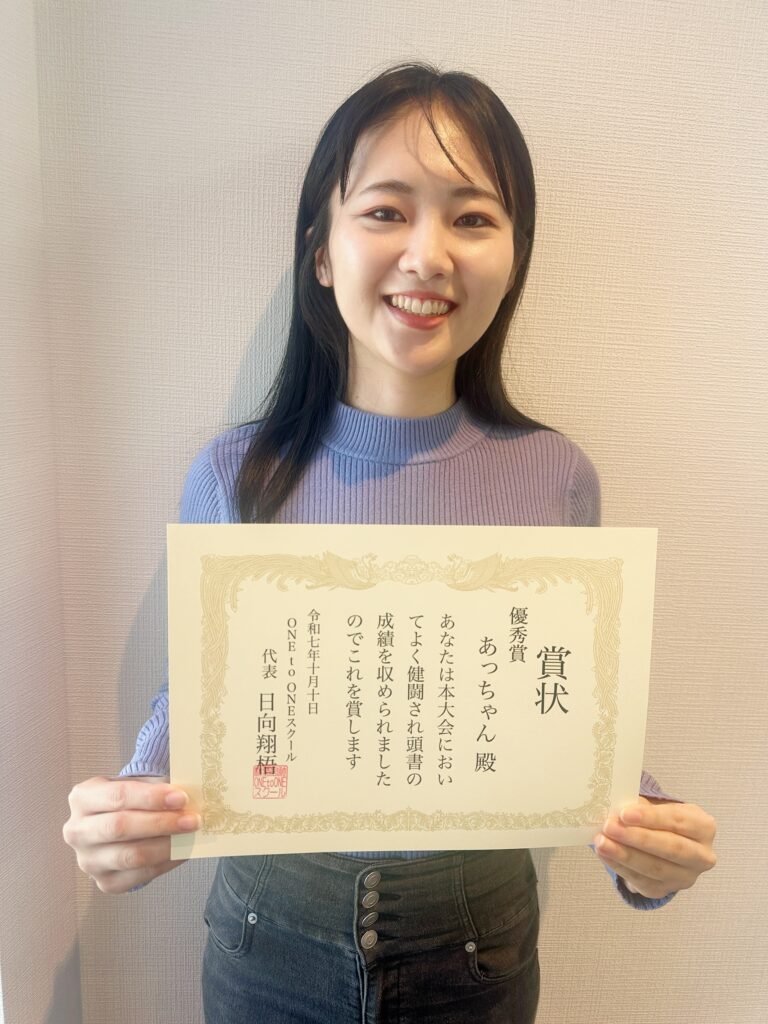 賞状
優秀賞
あっちゃん 殿
あなたは本大会におい
てよく健闘され頭書の
成績を収められました
のでこれを賞します
令和七年十月十日
ONE to ONEスクール
代表 日向翔悟
ONEtoONE
スクール